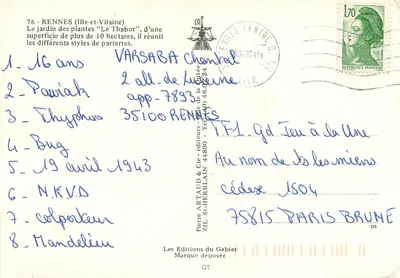 76 - RENNES (Ille-et-Vilaine)
Le jardin des plantes "Le Thabor", d'une
superficie de plus de 10 hectares, il réunit
les différents styles de parterres.
1 - 16 ans
2 - Pawiak
3 - Thyphus
4 - Bug
5 - 19 avril 1943
6 - N.K.V.D
7 - colporteur
8 - Mandelieu
VARSABA Chantal
2 all. de
app. 7893
35100 RENNES
Pierre ARTAUD & Cie - éditeurs
Z.I.L. St-HERBLAIN 44800
1,70
RENNES CENTRE
TF1. Gd Jeu à la Une
Au nom de ts les miens
cédex 1504
75815 PARIS BRUNE
Les Editions du Gabier
Marque déposée